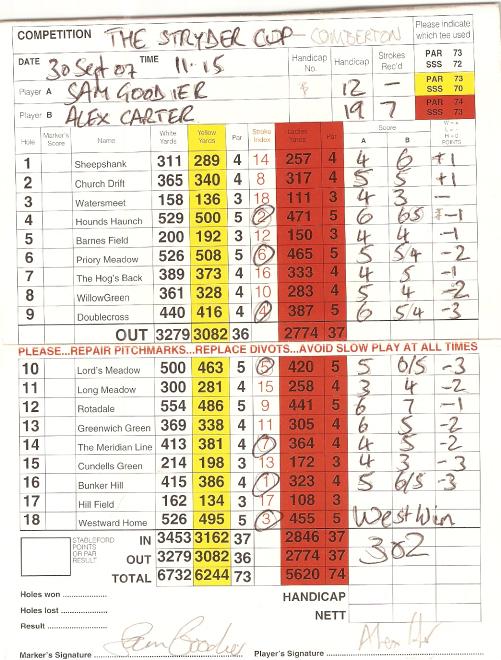 COMPETITION THE STRYDER CUP - COMBERTON
Please indicate which tee used
DATE 30 Sept 07 TIME 11.15 Handicap No. Handicap Strokes Rec'd PAR 73 SSS 72
Player A SAM GOODIER 12 — PAR 73 SSS 70
Player B ALEX CARTER 19 7 PAR 74 SSS 73
Hole Marker's Score Name White Yards Yellow Yards Par Stroke Index Ladies Yards Par Score A B W = + L = - H = 0 POINTS
1 Sheepshank 311 289 4 14 257 4 4 6 +1
2 Church Drift 365 340 4 8 317 4 5 5 +1
3 Watersmeet 158 136 3 18 111 3 4 3 —
4 Hounds Haunch 529 500 5 2 471 5 6 65 -1
5 Barnes Field 200 192 3 12 150 3 4 4 -1
6 Priory Meadow 526 508 5 6 465 5 5 5/4 -2
7 The Hog's Back 389 373 4 16 333 4 4 5 -1
8 WillowGreen 361 328 4 10 283 4 5 4 -2
9 Doublecross 440 416 4 4 387 5 6 5/4 -3
OUT 3279 3082 36 2774 37
PLEASE...REPAIR PITCHMARKS...REPLACE DIVOTS...AVOID SLOW PLAY AT ALL TIMES
10 Lord's Meadow 500 463 5 5 420 5 5 6/5 -3
11 Long Meadow 300 281 4 15 258 4 3 4 -2
12 Rotadale 554 486 5 9 441 5 6 7 -1
13 Greenwich Green 369 338 4 11 305 4 6 5 -2
14 The Meridian Line 413 381 4 7 364 4 4 5 -2
15 Cundells Green 214 198 3 13 172 3 4 3 -3
16 Bunker Hill 415 386 4 1 323 4 5 6/5 -3
17 Hill Field 162 134 3 17 108 3
18 Westward Home 526 495 5 3 455 5 West Win
STABLEFORD POINTS OR PAR RESULT
IN 3453 3162 37 2846 37 3&2
OUT 3279 3082 36 2774 37
TOTAL 6732 6244 73 5620 74
Holes won .................. HANDICAP
Holes lost ..................
NETT
Result ..................
Marker's Signature Sam Goodier Player's Signature